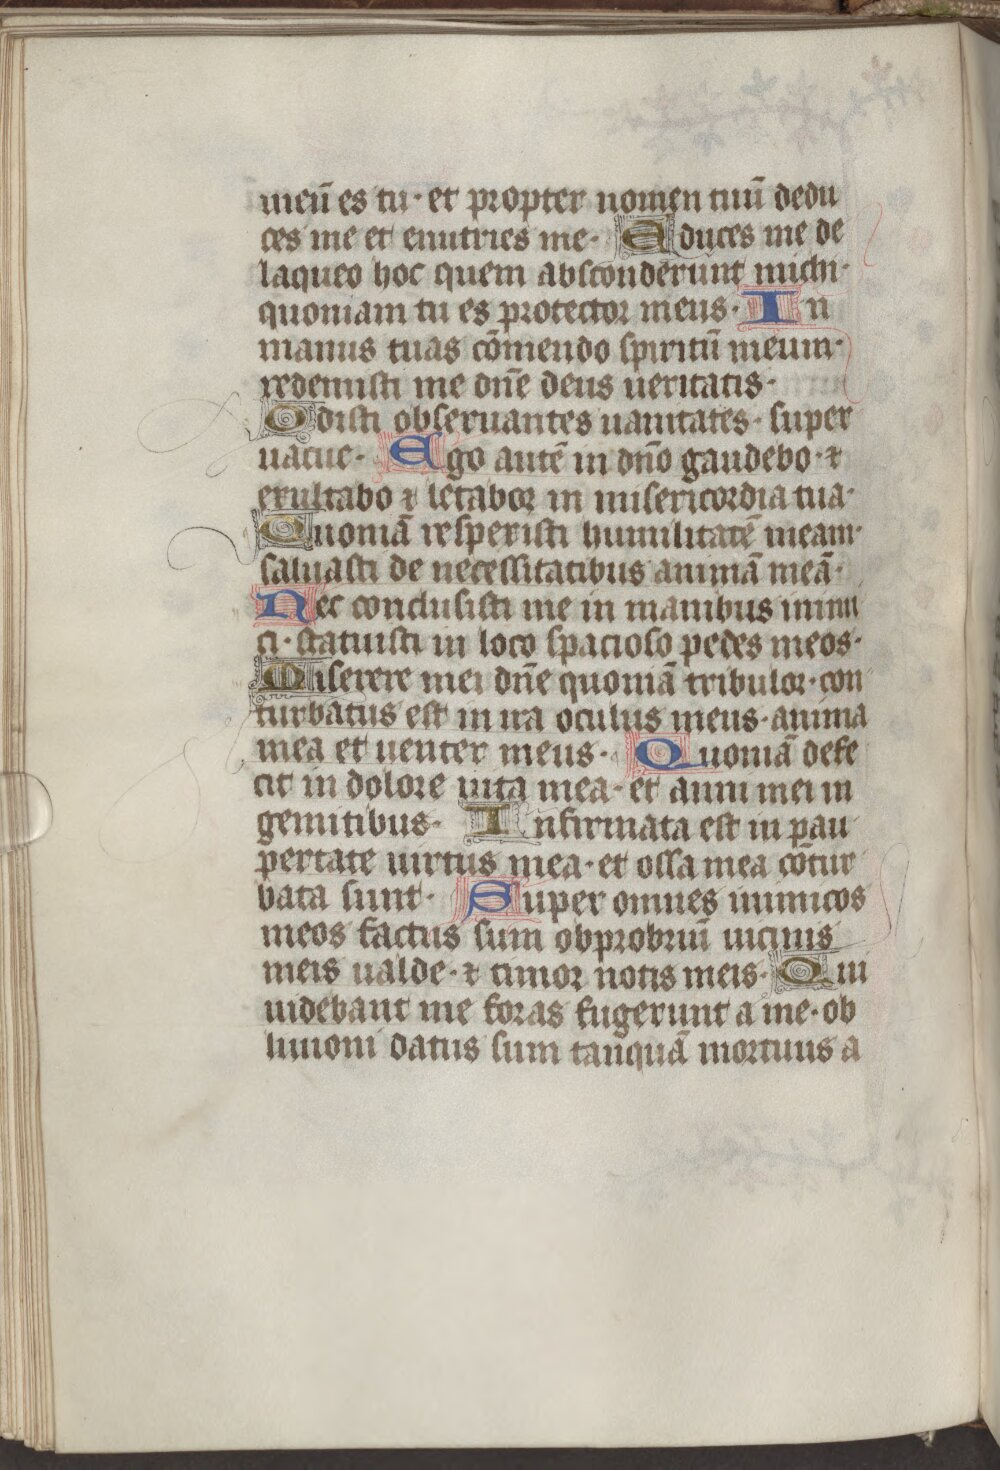 meū es tu · et propter nomen tuū dedu
ces me et enutries me · Educes me de
laqueo hoc quem absconderunt michi ·
quoniam tu es protector meus · In
manus tuas cōmendo spiritū meum ·
redemisti me dn̄e deus ueritatis ·
Odisti obseruantes uanitates · super
uacue · Ego autē in dn̄o gaudebo · ⁊
exultabo ⁊ letabor in misericordia tua ·
Quoniā respexisti humilitatē meam ·
saluasti de necessitatibus animā meā ·
Nec conclusisti me in manibus inimi
ci · statuisti in loco spacioso pedes meos ·
Miserere mei dn̄e quoniā tribulor · con
turbatus est in ira oculus meus · anima
mea et uenter meus · Quoniā defe
cit in dolore uita mea · et anni mei in
gemitibus · Infirmata est in pau
pertate uirtus mea · et ossa mea cōtur
bata sunt · Super omnes inimicos
meos factus sum obprobriū uicinis
meis ualde · ⁊ timor notis meis · Qui
uidebant me foras fugerunt a me · ob
liuioni datus sum tanquā mortuus a